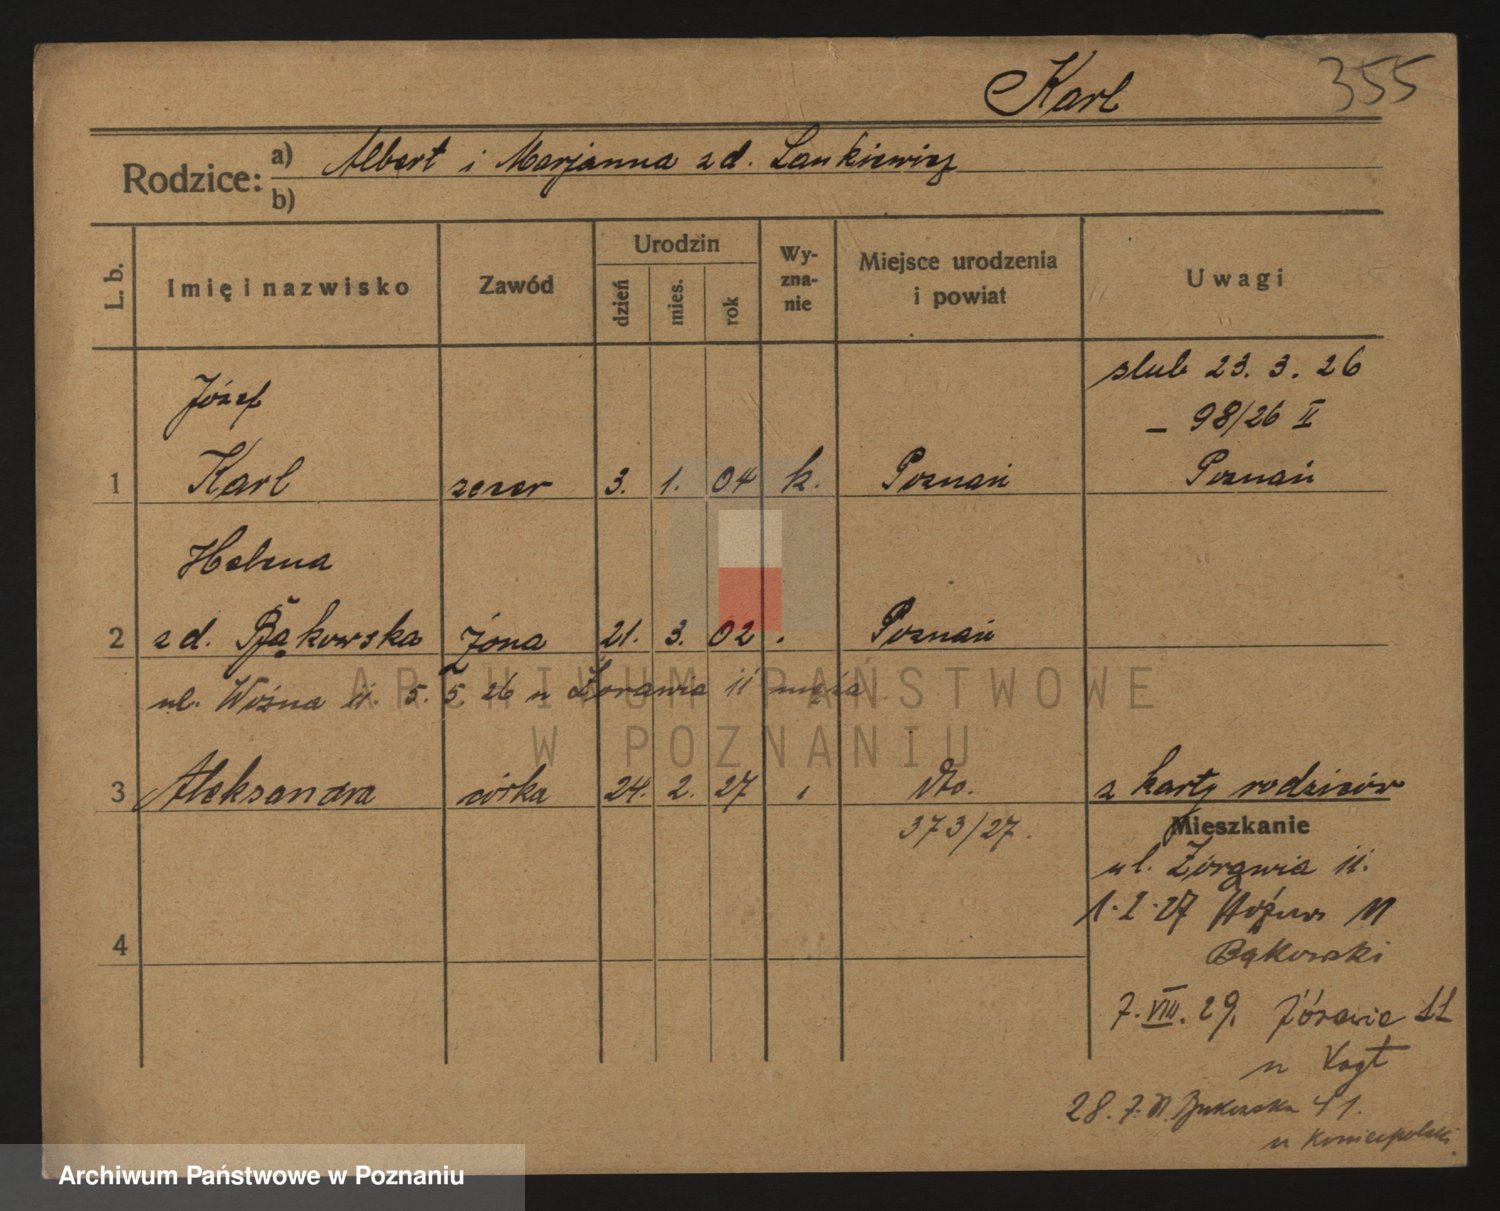 Karl 355
Rodzice: a) Albert i Marjanna zd. Lankiewicz
b)
L. b. Imię i nazwisko Zawód Urodzin dzień mies. rok Wy-zna-nie Miejsce urodzenia i powiat Uwagi
Józef slub 23. 3. 26
– 98/26 II
1 Karl zecer 3. 1. 04 k. Poznań Poznań
Helena
2 zd. Bąkowska żona 21. 3. 02 Poznań
ul. Woźna 11. 5. 5. 26 u Żorawia 11 męża
3 Aleksandra córka 24. 2. 27 dto. z karty rodziców
373/27.
Mieszkanie
ul. Żórawia 11.
1.2.27
4 Bąkowski
7. VIII. 29. Żórawia 11
u Vogt
28. 7.
ARCHIWUM PAŃSTWOWE
W POZNANIU
Archiwum Państwowe w Poznaniu